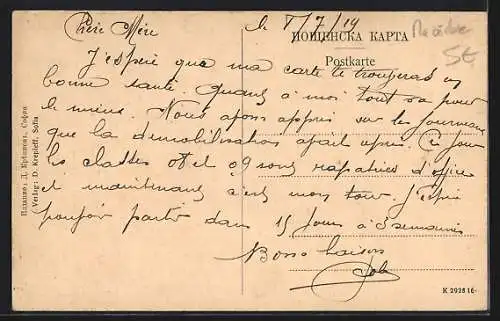 le 8/7/19
Chère Mère
ПОЩЕНСКА КАРТА
Postkarte
J'espère que ma carte te trouveras en
bonne santé. Quant à moi tout va pour
le mieux. Nous avons appris sur les journaux
que la démobilisation après. Ce jour
les classes 08 et 09 sont rapatriées d'office
et maintenant c'est mon tour. J'espère
pouvoir partir dans 15 jours à 3 semaines
Bons baisers
Издание: Д. Крѣплевъ, София
Verlag: D. Krepleff, Sofia
K 2928 16-